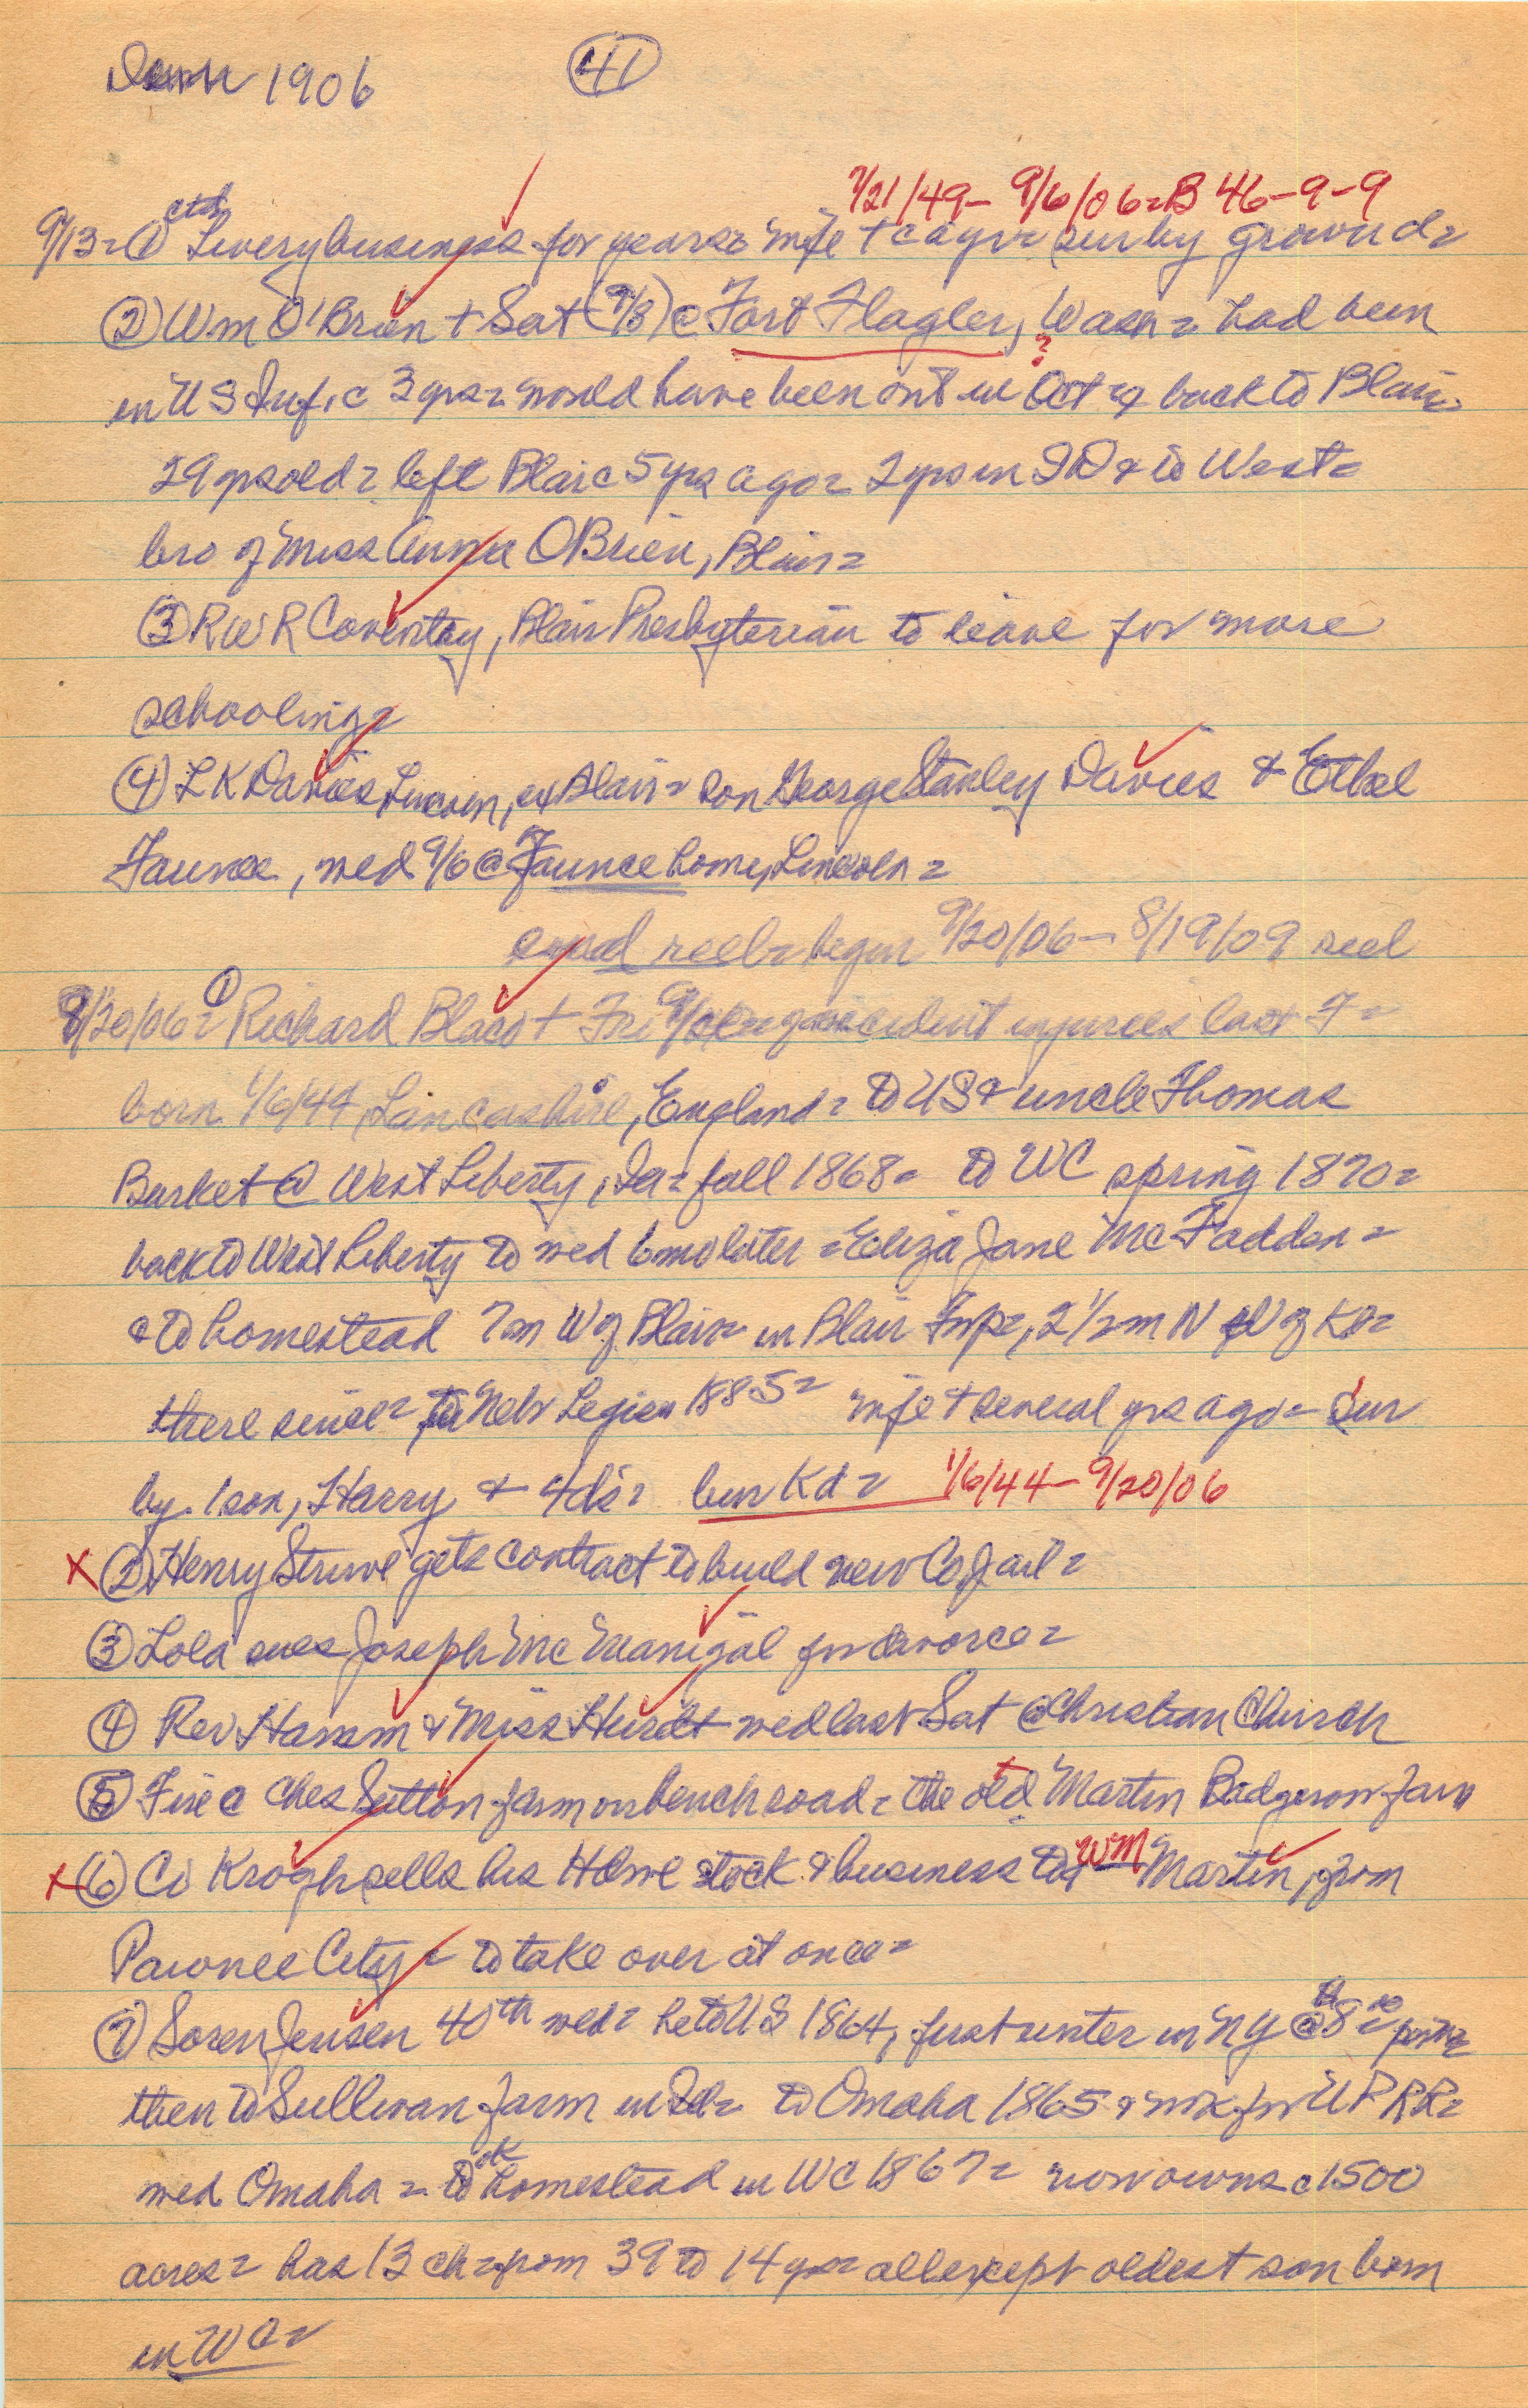 1906 (41)
7/21/49- 9/6/06= B 46-9-9
9/13= ① ctd Livery business for years= wife + c ago= sur by grown d=
② Wm O'Brien + Sat (9/8) @ Fort Flagler, Wash= had been
in US Inf, c 3 yrs= would have been out in Oct & back to Blair=
29 yrs old= left Blair c 5 yrs ago= 2 yrs in & to West=
bro of Miss Anna OBrien, Blair=
③ R W R Coventry, Blair Presbyterian to leave for more
schooling=
④ L K Davies, Lincoln, ex Blair= son George Stanley Davies & Ethel
Faunce, wed 9/6 @ Faunce home, Lincoln=
end reel= begin 9/20/06- 8/19/09 reel
9/20/06= ① Richard Blaco + Fri accident injuries last
born 1/6/44, Lancashire, England= to US & uncle Thomas
Barket @ West Liberty, Ia= fall 1868= to WC spring 1870=
back to West Liberty to wed 6 mo later= Eliza Jane McFadden=
& to homestead 7m W of Blair= in Blair Twp=, 2 1/2 m N W of Kd=
there since= to Neb Legis 1885= wife + several yrs ago= sur
by 1 son, Harry & 4 ds= bur Kd= 1/6/44- 9/20/06
X ② Henry Struve gets contract to build new Co Jail=
③ Lola sues Joseph McManigal for divorce=
④ Rev Hamm & Miss Hurdt wed last Sat @ Christian Church
⑤ Fire @ Ches Sutton farm on bench road= the old Martin Badgerow farm
X ⑥ Ci Krogh sells his Hdwe stock & business to Wm Martin, from
Pawnee City= to take over at once=
⑦ Soren Jensen 40th wed= he to US 1864, first winter in NY @ 8
then to Sullivan farm in to Omaha 1865 & wk for U P RR=
wed Omaha= to homestead in WC 1867= now owns c 1500
acres= has 13 ch= from 39 to 14 yrs= all except oldest son born
in WC=